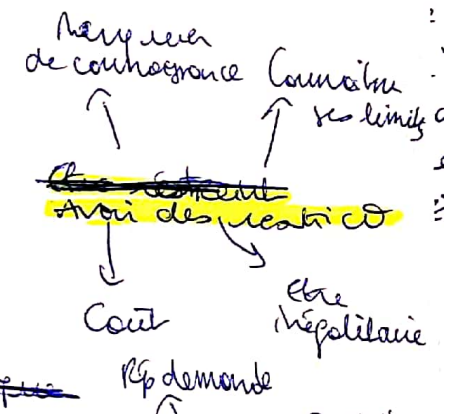 Manquer
de connaissance
Connaître
ses limites
Être restreint
Avoir des restrict°
Coût
Être
inégalitaire
Rép demande